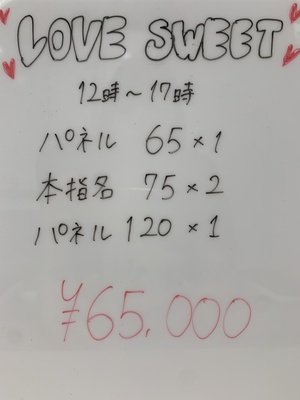 LOVE SWEET
12時～17時
パネル 65×1
本指名 75×2
パネル 120×1
¥65.000